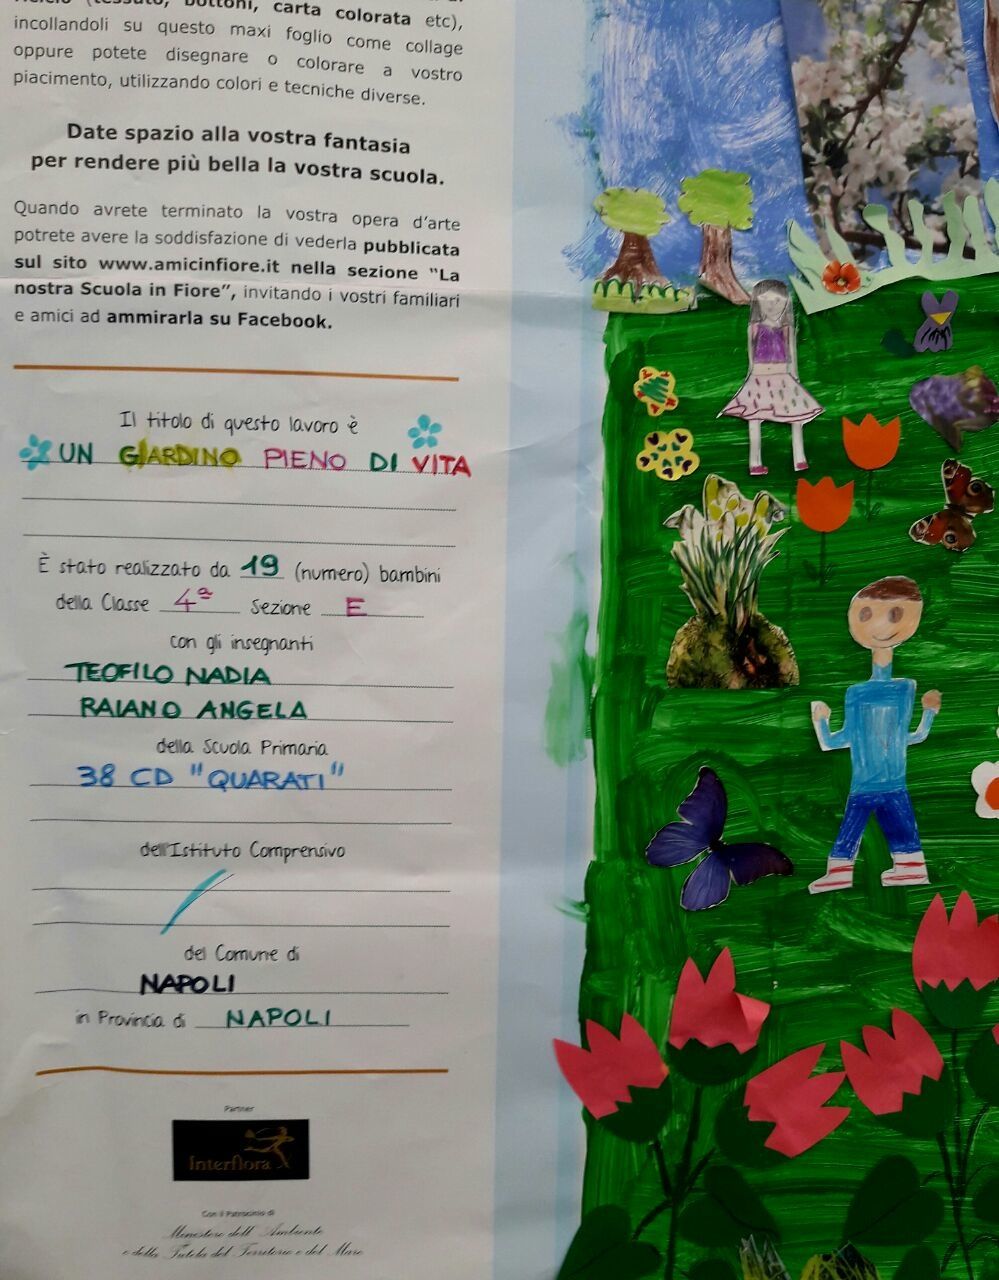 riciclo (tessuto, bottoni, carta colorata etc),
incollandoli su questo maxi foglio come collage
oppure potete disegnare o colorare a vostro
piacimento, utilizzando colori e tecniche diverse.
Date spazio alla vostra fantasia
per rendere più bella la vostra scuola.
Quando avrete terminato la vostra opera d'arte
potrete avere la soddisfazione di vederla pubblicata
sul sito www.amicinfiore.it nella sezione "La
nostra Scuola in Fiore", invitando i vostri familiari
e amici ad ammirarla su Facebook.
Il titolo di questo lavoro è
UN GIARDINO PIENO DI VITA
È stato realizzato da 19 (numero) bambini
della Classe 4ª Sezione E
con gli insegnanti
TEOFILO NADIA
RAIANO ANGELA
della Scuola Primaria
38 CD "QUARATI"
dell'Istituto Comprensivo
del Comune di
NAPOLI
in Provincia di NAPOLI
Partner
Interflora
Con il Patrocinio di
Ministero dell'Ambiente
e della Tutela del Territorio e del Mare